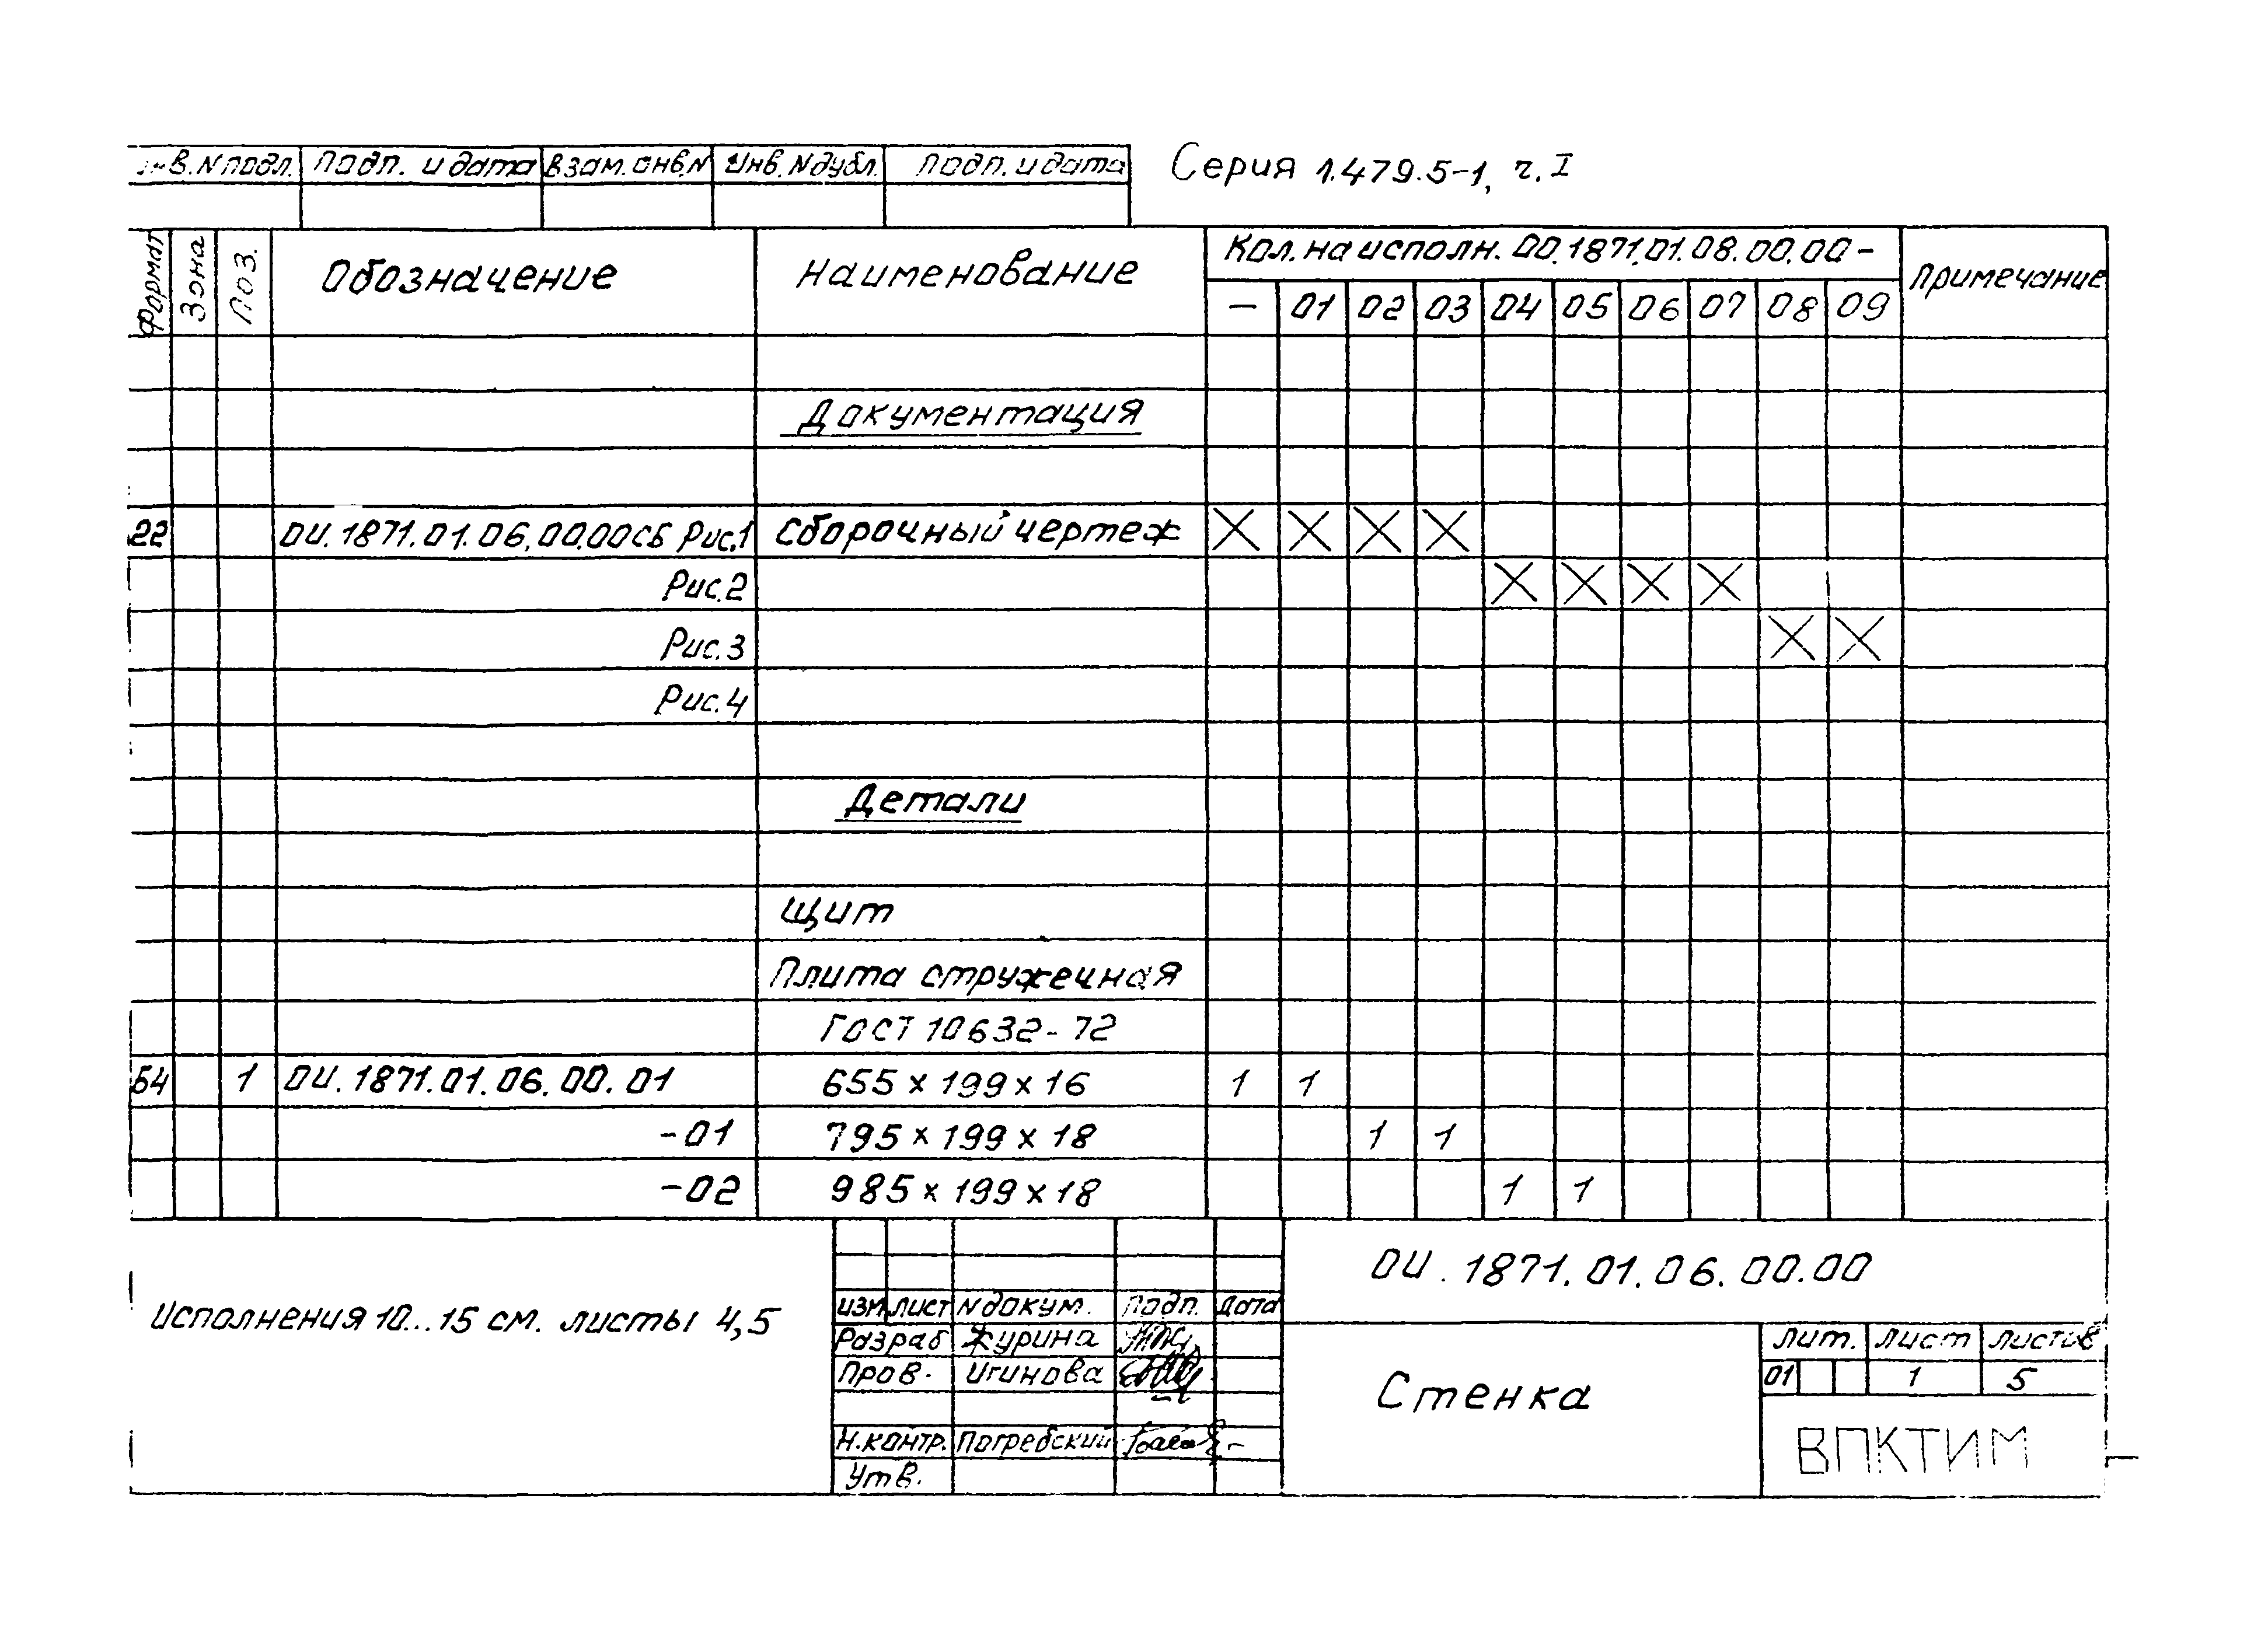 Инв.N подл. Подп. и дата Взам.инв.N Инв.N дубл. Подп. и дата Серия 1.479.5-1, ч.I
Формат Зона Поз. Обозначение Наименование Кол. на исполн. ОО.1871.01.08.00.00- Примечание
- 01 02 03 04 05 06 07 08 09
Документация
22 ОИ.1871.01.06.00.00СБ Рис.1 Сборочный чертеж X X X X
Рис.2 X X X X
Рис.3 X X
Рис.4
Детали
Щит
Плита стружечная
ГОСТ 10632-72
Б4 1 ОИ.1871.01.06.00.01 655×199×16 1 1
-01 795×199×18 1 1
-02 985×199×18 1 1
Исполнения 10...15 см. листы 4,5
ОИ.1871.01.06.00.00
Изм. Лист N докум. Подп. Дата
Разраб Журина
Пров. Игинова
Н.контр. Погребский
Утв.
Стенка
Лит. Лист Листов
01 1 5
ВПКТИМ